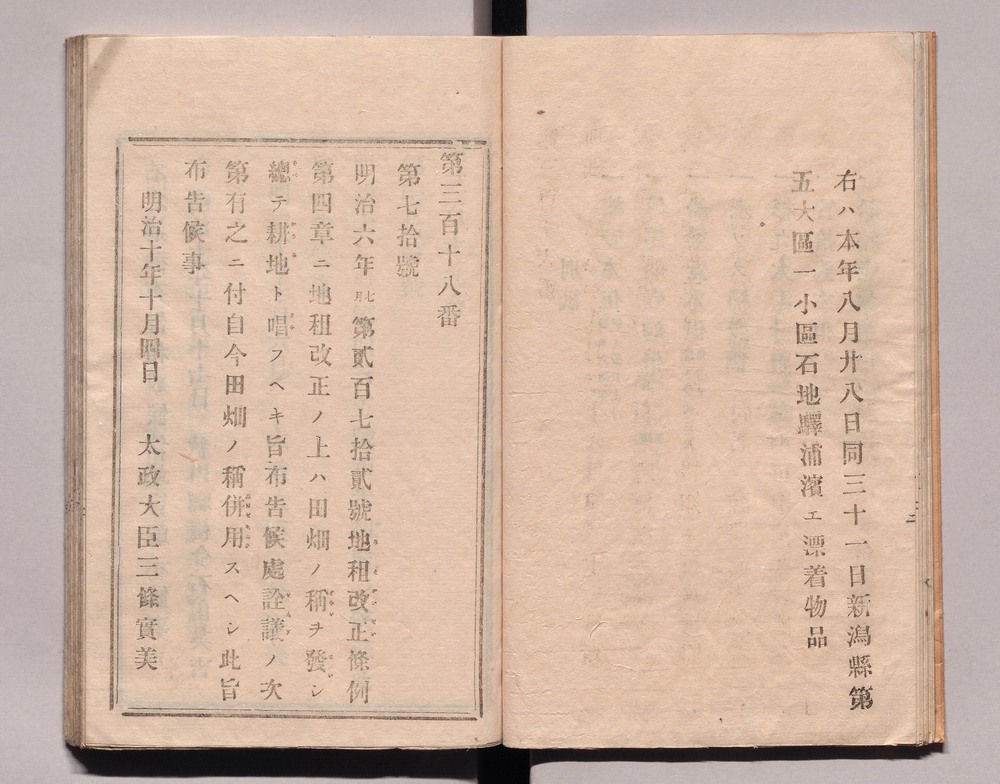 右ハ本年八月廿八日同三十一日新潟縣第
五大區一小區石地驛浦濱エ漂着物品
第三百十八番
第七拾號
明治六年七月第貳百七拾貳號地租改正條例
第四章ニ地租改正ノ上ハ田畑ノ稱ヲ發シ
總テ耕地ト唱フヘキ旨布告候處詮議ノ次
第有之ニ付自今田畑ノ稱併用スヘシ此旨
布告候事
明治十年十月四日 太政大臣三條實美